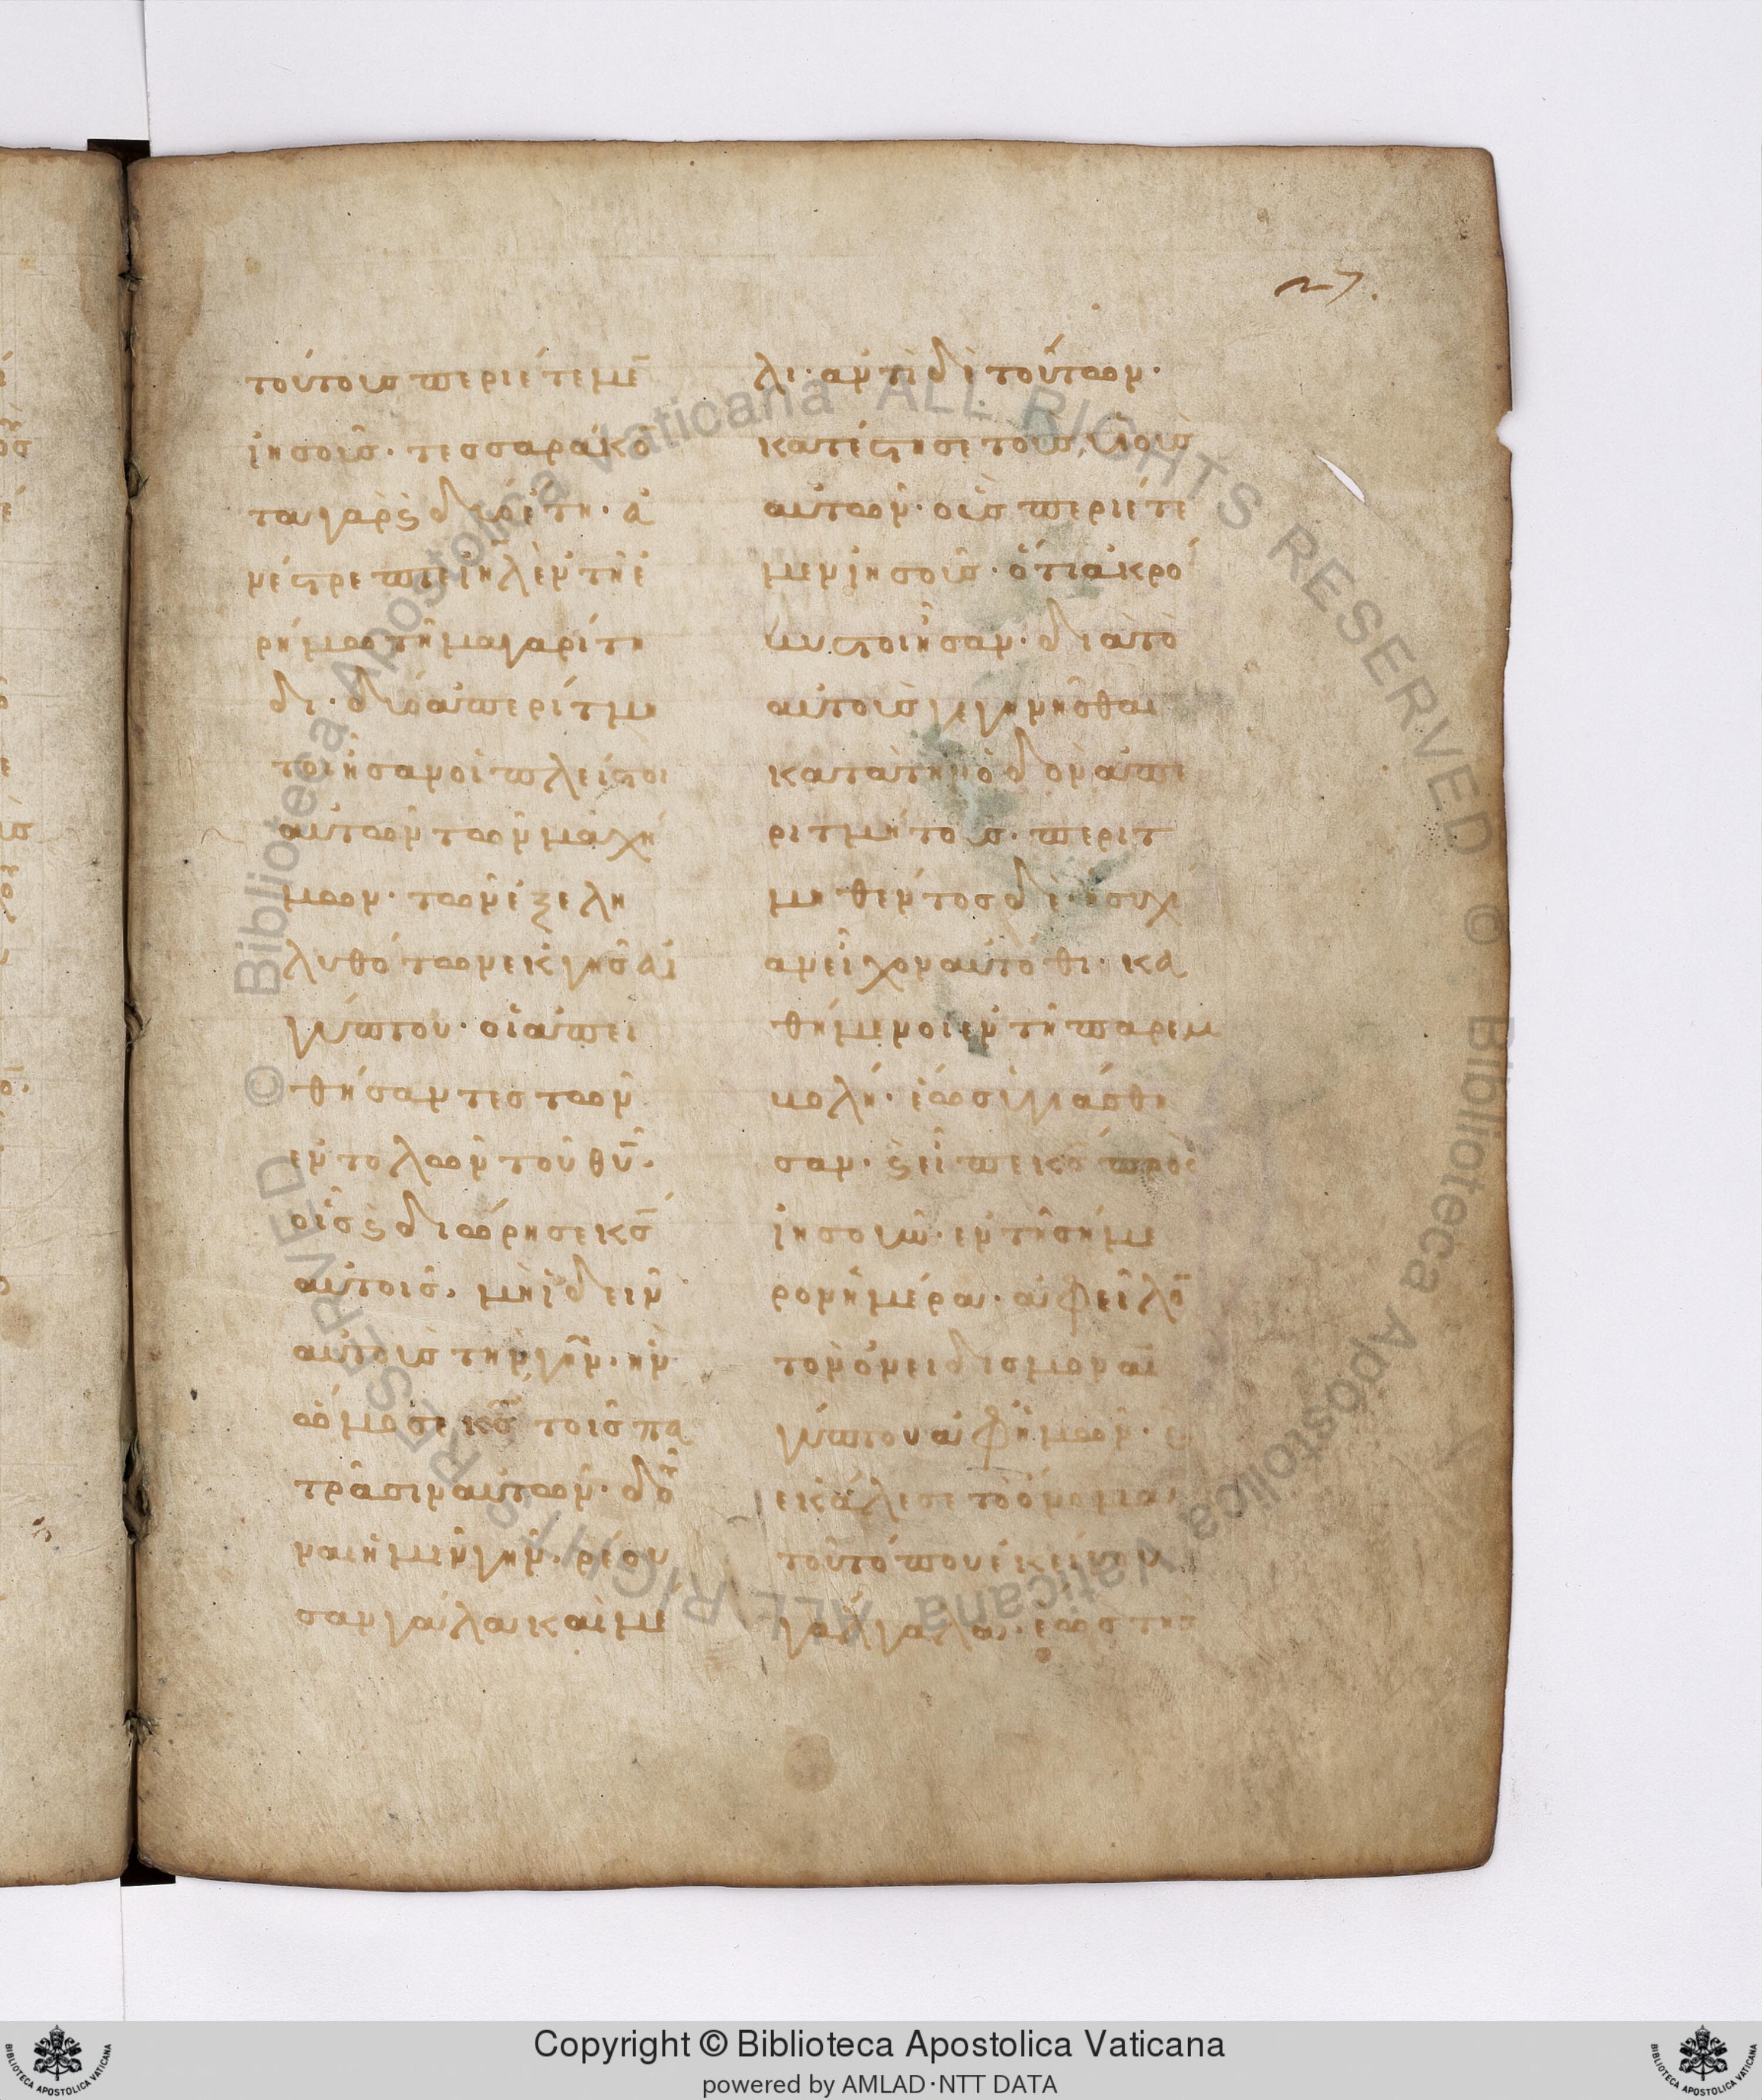 27.
τούτουσ περιέτεμε̅
ἰησοῦσ. τεσσαράκο̅
τα γὰρ ϛ δύο ἔτη. ἀ
νέϛρεπτε ἰη̅λ ἐν τῆ ἐ
ρήμω τῆ μαγαρίτη
δι. διὸ ἀπερίτμη
τοι ἦσαν οἱ πλεῖϛοι
αὐτῶν τῶν μαχή
μων. τῶν ἐξελη
λυθότων ἐκ γῆσ αἰ
γύπτου. οἱ ἀπει
θήσαντεσ τῶν
ἐντολῶν τοῦ θυ̅.
οἷσ ϛ διώρησε κσ̅
αὐτοῖσ. μὴ ἰδεῖν
αὐτοὺσ τὴν γῆν. ἣν
ὤμοσε κσ̅ τοῖσ πα
τράσιν αὐτῶν. δοῦ
ναι ἡμῖν γῆν. ρέου
σαν γάλα καὶ μέ
λι. ἀντὶ δὲ τούτων.
κατέϛησε τοὺσ υἱοὺσ
αὐτῶν. οὓσ περιέτε
μεν ἰησοῦσ. ὅτι ἀκρό
βυϛοι ἦσαν. διὰ τὸ
αὐτοὺσ γεγενῆσθαι
κατὰ τὴν ὁδὸν ἀπε
ριτμήτουσ. περιτ
μηθέντοσ δὲ. ἡσυχί
αν εἶχον αὐτόθι. κα
θήμενοι ἐν τῆ παρεμ
βολῆ. ἕωσ ὑγιάσθη
σαν. ϛ εἶπε κσ̅ πρὸσ
ἰησοῦν. ἐν τῆ σήμε
ρον ἡμέρα. ἀφεῖλο̅
τὸν ὀνειδισμὸν αἰ
γύπτου ἀφ ἡμῶν. ϛ
ἐκάλεσε τὸ ὄνομα
τοῦ τόπου ἐκείνου
γάλγαλα. ἕωσ τῆσ
Copyright © Biblioteca Apostolica Vaticana
powered by AMLAD·NTT DATA